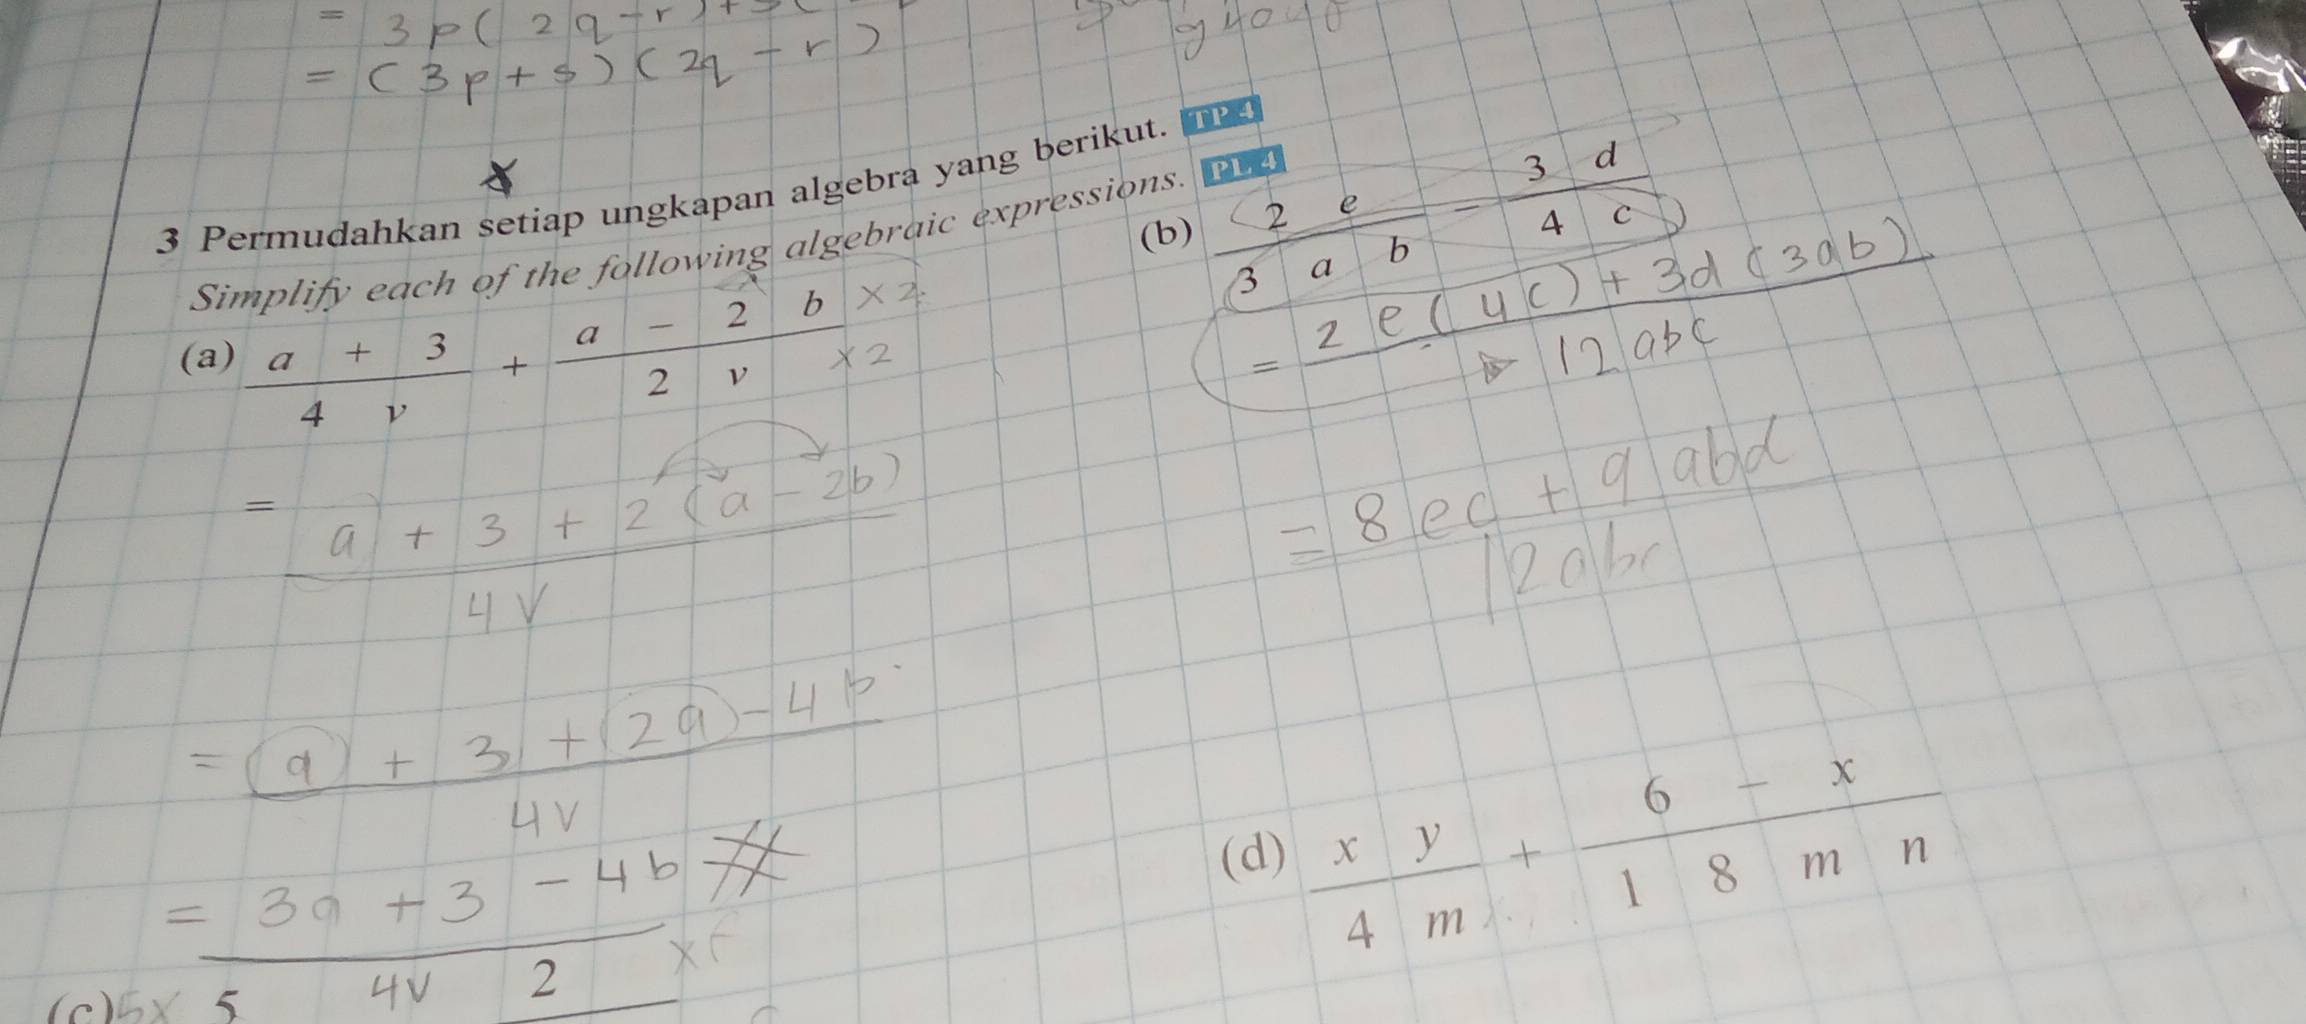 = 3p(2q - r) +
= (3p + s)(2q - r)
3 Permudahkan setiap ungkapan algebra yang berikut. TP 4
Simplify each of the following algebraic expressions. PL 4
(a) \frac{a + 3}{4v} + \frac{a - 2b}{2v} \frac{× 2}{× 2}
= \frac{a + 3 + 2(a - 2b)}{4v}
= \frac{a + 3 + 2a - 4b}{4v}
= \frac{3a + 3 - 4b}{4v}
(b) \frac{2e}{3ab} - \frac{3d}{4c}
= \frac{2e(4c) + 3d(3ab)}{12abc}
= \frac{8ec + 9abd}{12abc}
(c) 5x 5 2
(d) \frac{xy}{4m} + \frac{6 - x}{18mn}